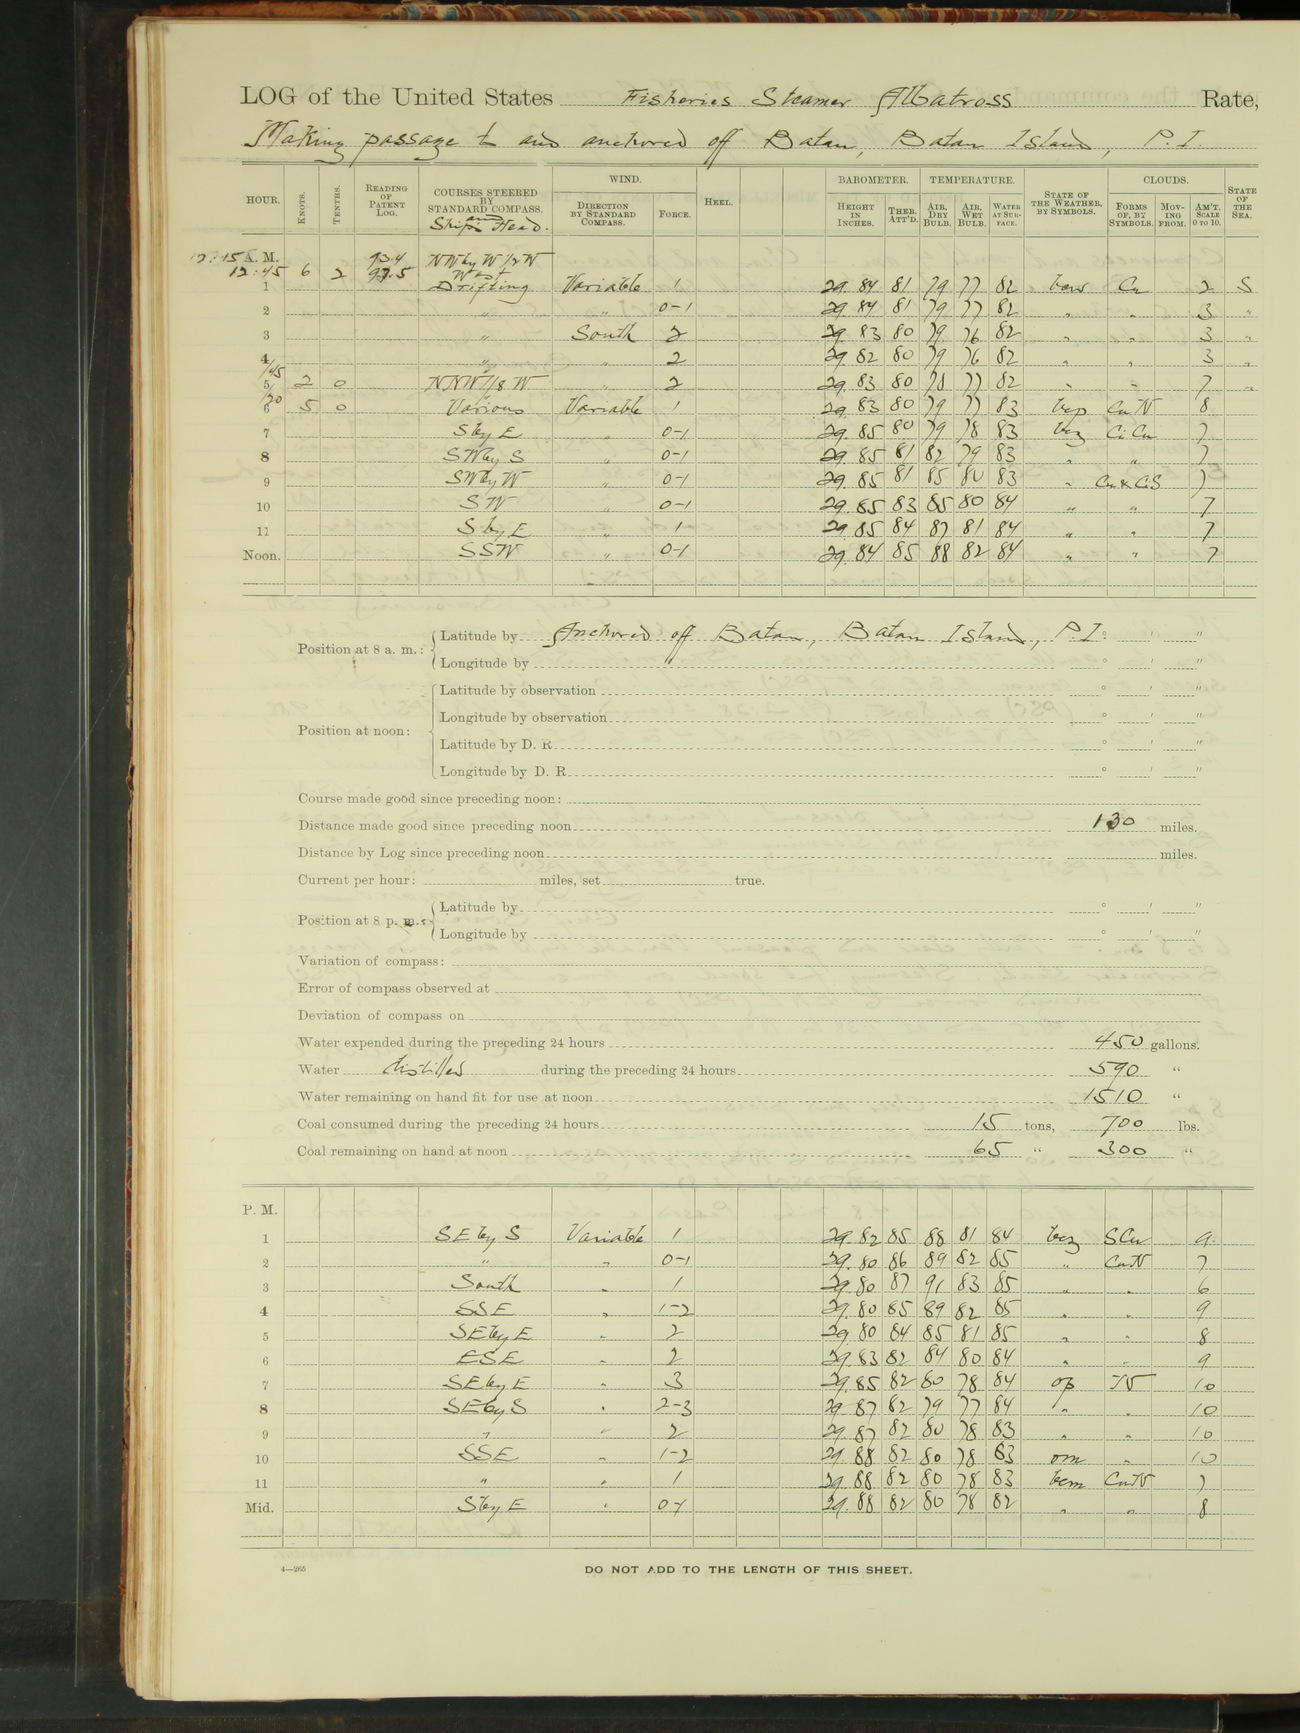 LOG of the United States Fisheries Steamer Albatross Rate,
Making passage to and anchored off Batan, Batan Island, P. I.
HOUR. KNOTS. TENTHS. READING OF PATENT LOG. COURSES STEERED BY STANDARD COMPASS. and Ship's Head. WIND. DIRECTION BY STANDARD COMPASS. FORCE. HEEL. BAROMETER. HEIGHT IN INCHES. THER. ATT'D. TEMPERATURE. AIR, DRY BULB. AIR, WET BULB. WATER AT SURFACE. STATE OF THE WEATHER, BY SYMBOLS. CLOUDS. FORMS OF, BY SYMBOLS. MOVING FROM. AM'T, SCALE 0 TO 10. STATE OF THE SEA.
12:15 A. M. 93.4 NW by W 1/2 W
12:45 6 2 97.5 West
1 Drifting Variable 1 29.84 81 79 77 82 Cu 2 S
2 " " 0-1 29.84 81 79 77 82 " " 3 "
3 " South 2 29.83 80 79 76 82 " " 3 "
4 " " 2 29.82 80 79 76 82 " " 3 "
/45
5 2 0 NNW 7/8 W " 2 29.83 80 78 77 82 " " 7 "
/20
6 5 0 Various Variable 1 29.83 80 79 77 83 bcp CuN 8
7 S by E " 0-1 29.85 80 79 78 83 bcz CiCu 7
8 SW by S " 0-1 29.85 81 82 79 83 " " 7
9 SW by W " 0-1 29.85 81 85 80 83 " Cu & CiS 7
10 SW " 0-1 29.85 83 85 80 84 " " 7
11 S by E " 1 29.85 84 87 81 84 " " 7
Noon. SSW " 0-1 29.84 85 88 82 84 " " 7
Position at 8 a. m.: Latitude by Anchored off Batan, Batan Island, P.I. ° ' "
Longitude by ° ' "
Position at noon: Latitude by observation ° ' "
Longitude by observation ° ' "
Latitude by D. R. ° ' "
Longitude by D. R. ° ' "
Course made good since preceding noon:
Distance made good since preceding noon 130 miles.
Distance by Log since preceding noon miles.
Current per hour: miles, set true.
Position at 8 p. m.: Latitude by ° ' "
Longitude by ° ' "
Variation of compass:
Error of compass observed at
Deviation of compass on
Water expended during the preceding 24 hours 450 gallons.
Water distilled during the preceding 24 hours 590 "
Water remaining on hand fit for use at noon 1510 "
Coal consumed during the preceding 24 hours 15 tons, 700 lbs.
Coal remaining on hand at noon 65 " 300 "
P. M.
1 SE by S Variable 1 29.82 85 88 81 84 bcz SCu 9
2 " " 0-1 29.80 86 89 82 85 " CuN 7
3 South " 1 29.80 87 91 83 85 " " 6
4 SSE " 1-2 29.80 85 89 82 85 " " 9
5 SE by E " 2 29.80 84 85 81 85 " " 8
6 ESE " 2 29.83 82 84 80 84 " " 9
7 SE by E " 3 29.85 82 80 78 84 op N 10
8 SE by S " 2-3 29.87 82 79 77 84 " " 10
9 " " 2 29.87 82 80 78 83 " " 10
10 SSE " 1-2 29.88 82 80 78 83 om " 10
11 " " 1 29.88 82 80 78 83 bcm CuN 7
Mid. S by E " 0-1 29.88 82 80 78 82 " " 8
4—265 DO NOT ADD TO THE LENGTH OF THIS SHEET.